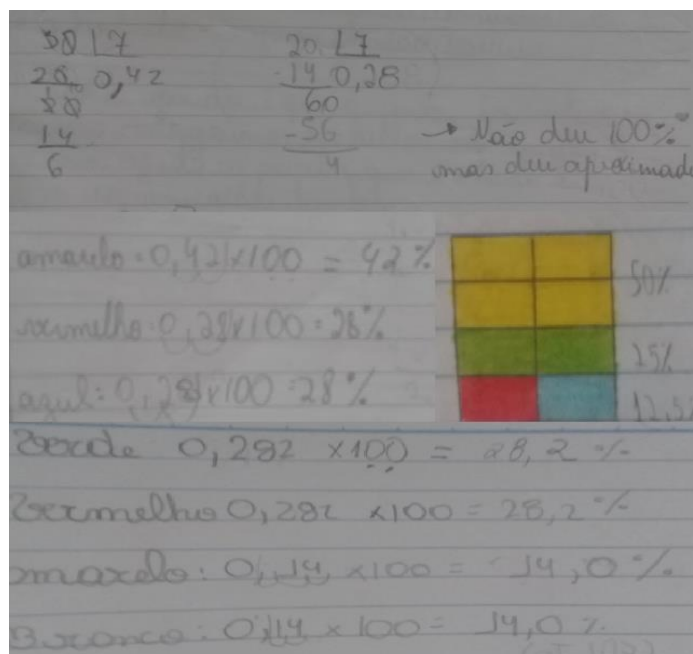 30 | 7
28 0,42
20
14
6
20 | 7
-14 0,28
60
-56
4
→ Não deu 100%
mas deu aproximado
amarelo: 0,42 x 100 = 42%
vermelho: 0,28 x 100 = 28%
azul: 0,28 x 100 = 28%
50%
25%
12,5
Verde 0,282 x 100 = 28,2 %
Vermelho 0,282 x 100 = 28,2 %
amarelo: 0,14 x 100 = 14,0 %
Branco: 0,14 x 100 = 14,0 %